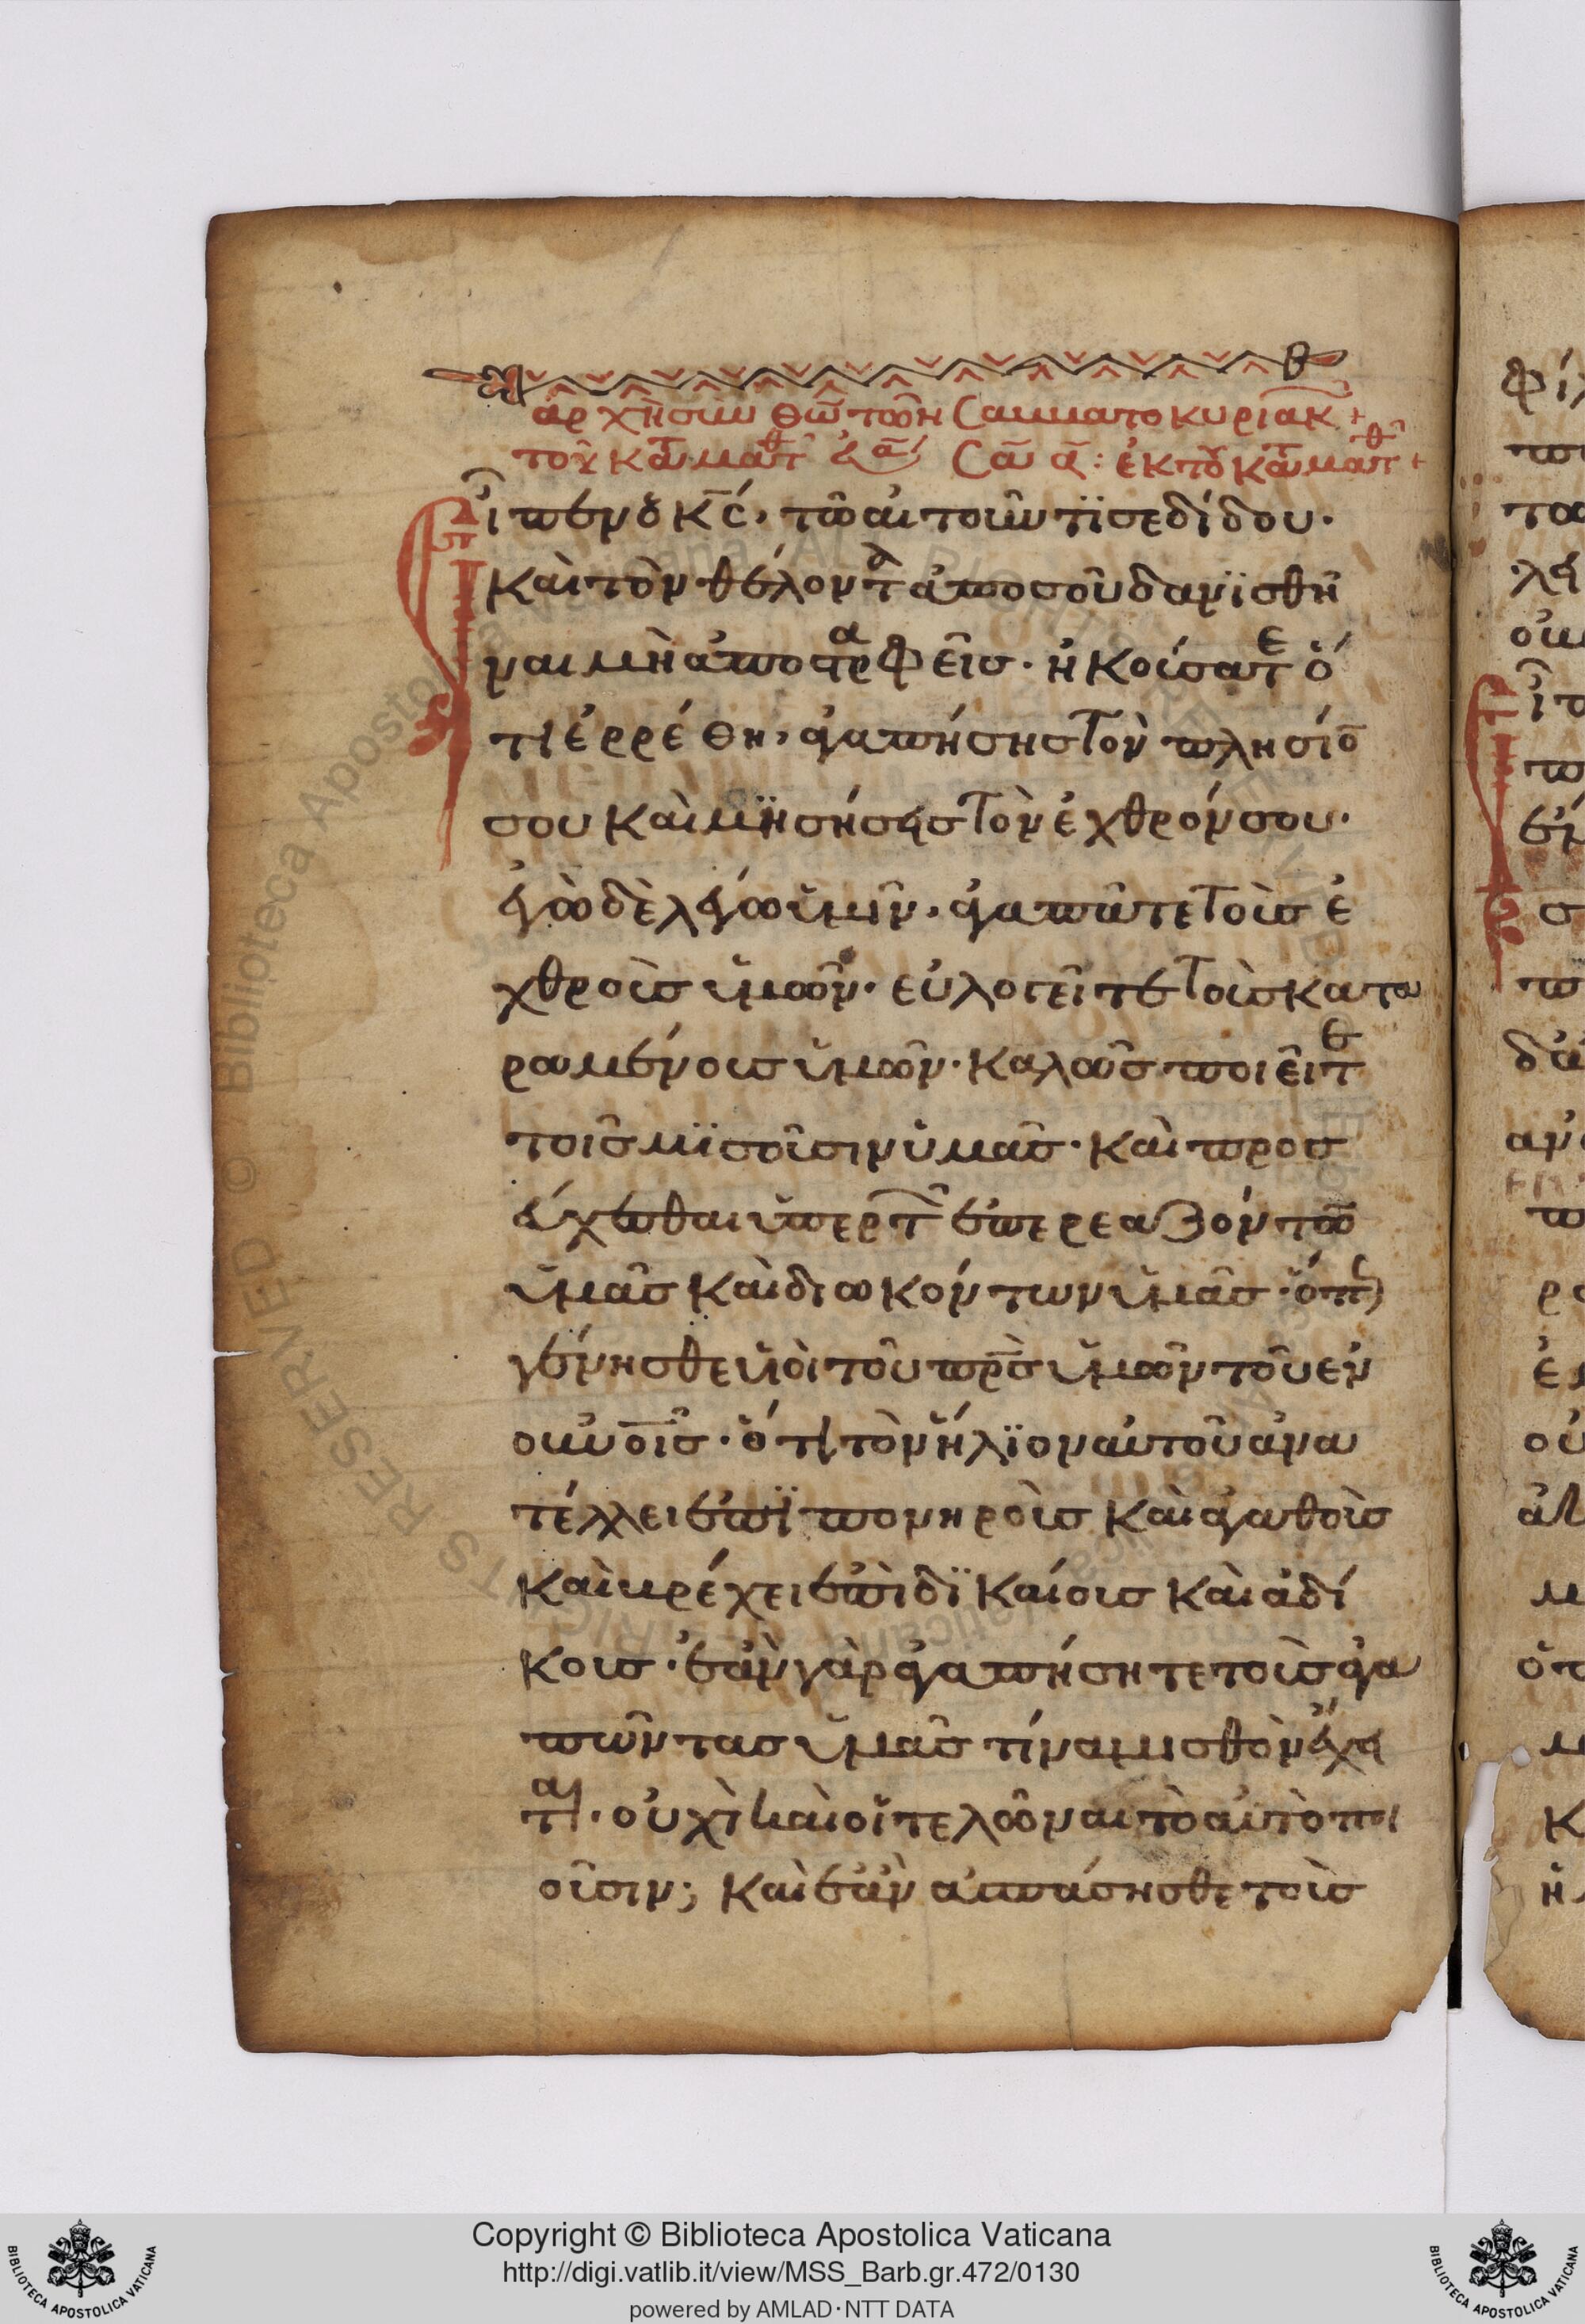 ἀρχὴ σὺν θῶ τῶν σαμματοκυριακ +
τοῦ κατ ματθ σα α: ἐκ τοῦ κατ ματθ +
εἶπεν ὁ κς, τῶ αἰτοῦντι σε δίδου·
καὶ τὸν θέλοντα ἀπὸ σοῦ δανϊσθῆ
ναι μὴ ἀποστραφεῖς· ἠκούσατε ὅ
τι ἐρρέθη, ἀγαπήσησ τὸν πλησίο
σου καὶ μϊησήσεισ τὸν ἐχθρόν σου·
ἐγὼ δὲ λέγω ὑμῖν, ἀγαπᾶτε τοὺσ ἐ
χθροὺσ ὑμῶν· εὐλογεῖτε τοὺσ κατα
ραμένουσ ὑμῶν· καλῶσ ποιεῖτε
τοῖσ μϊσοῦσιν ὑμᾶσ· καὶ προσ
εύχεσθαι ὑπερ τ ἐπερεαζόντω
ὑμᾶσ καὶ διωκόντων ὑμᾶσ· ὅπως
γένησθε υἱοὶ τοῦ πρσ ὑμῶν τοῦ εν
ουνοισ· ὅτι τὸν ἥλϊον αὐτοῦ ἀνα
τέλλει ἐπϊ πονηροὺσ καὶ ἀγαθοὺσ
καὶ βρέχει ἐπὶ δϊκαίουσ καὶ ἀδί
κουσ· ἐὰν γὰρ ἀγαπήσητε τοὺσ ἀγα
πῶντασ ὑμᾶσ τίνα μισθὸν ἔχε
ται· οὐχὶ καὶ οἱ τελῶναι τὸ αὐτὸ ποι
οῦσιν; καὶ ἐὰν ἀσπάσησθε τοὺσ
Copyright © Biblioteca Apostolica Vaticana
http://digi.vatlib.it/view/MSS_Barb.gr.472/0130
powered by AMLAD·NTT DATA